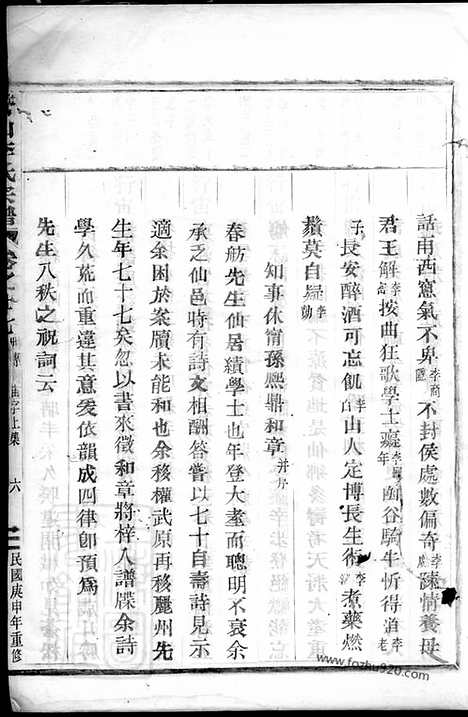 話雨西窻氣不卑李商隱不封侯處數偏奇李廣陳情養母
君王解李密按曲狂歌學士癡李龜年函谷騎牛忻得道李老
子長安醉酒可忘飢李白山人定博長生術李泌煮藥燃
鬚莫自歸李勣
知事休甯孫熙鼎和章并序
春舫先生仙居績學士也年登大耋而聰明不衰余
承乏仙邑時有詩文相酬答嘗以七十自壽詩見示
適余困於案牘未能和也余移權武原再移麗州先
生年七十七矣忽以書來徵和章將梓入譜牒余詩
學久荒而重違其意爰依韻成四律卽預為
先生八秩之祝詞云
氏宗譜
由字上集
六
民國庚申年重修
www.fozhu920.com